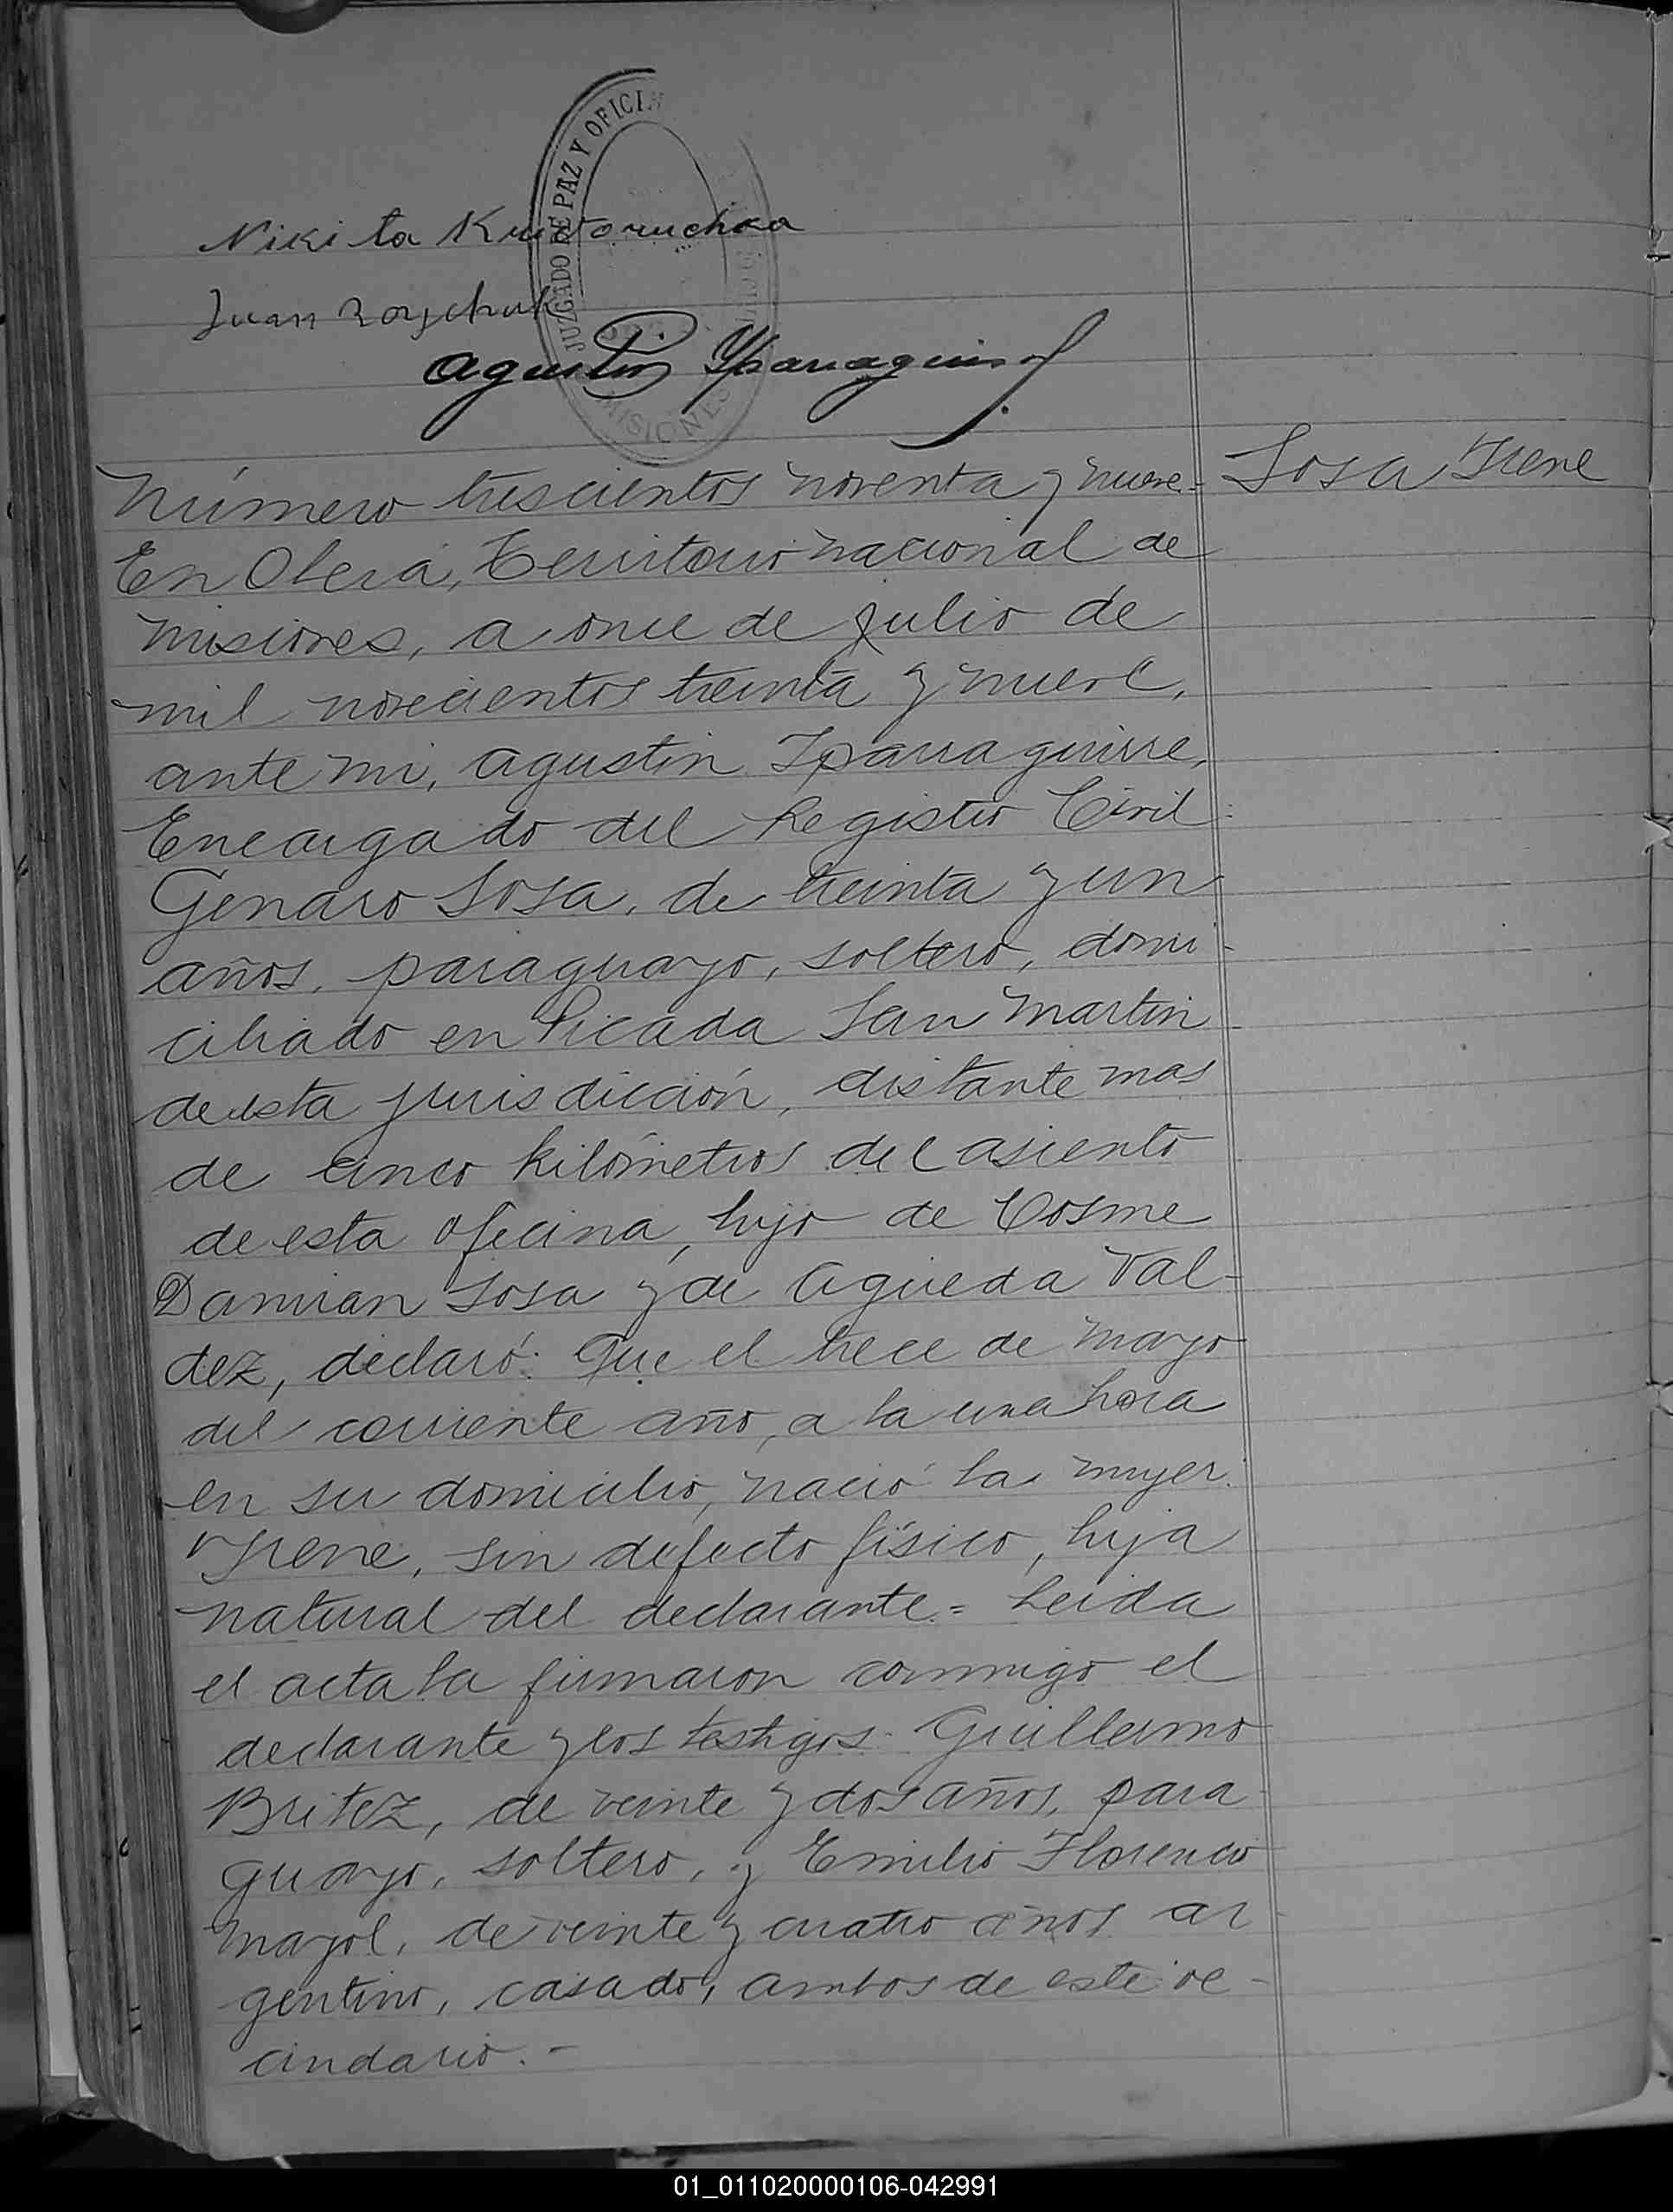 JUZGADO DE PAZ Y OFICIN
MISIONES
Nikita
Juan
Agustin Yparraguirre
Número trescientos noventa y nueve.=
Sosa Irene
En Oberá, Territorio nacional de
misiones, a once de julio de
mil novecientos treinta y nueve,
ante mi, Agustin Iparraguirre,
Encargado del Registro Civil:
Genaro Sosa, de treinta y un
años, paraguayo, soltero, domi-
ciliado en Picada San Martin
de esta jurisdicción, distante mas
de cinco kilómetros del asiento
de esta oficina, hijo de Cosme
Damian Sosa y de Agueda Val-
dez, declaró: Que el trece de mayo
del corriente año, a la una hora
en su domicilio, nació la mujer
Yrene, sin defecto físico, hija
natural del declarante.= Leida
el acta la firmaron conmigo el
declarante y los testigos: Guillermo
Britez, de veinte y dos años, para-
guayo, soltero, y Emilio Florencio
Mayol, de veinte y cuatro años ar-
gentino, casado, ambos de este ve-
cindario.-
01_011020000106-042991